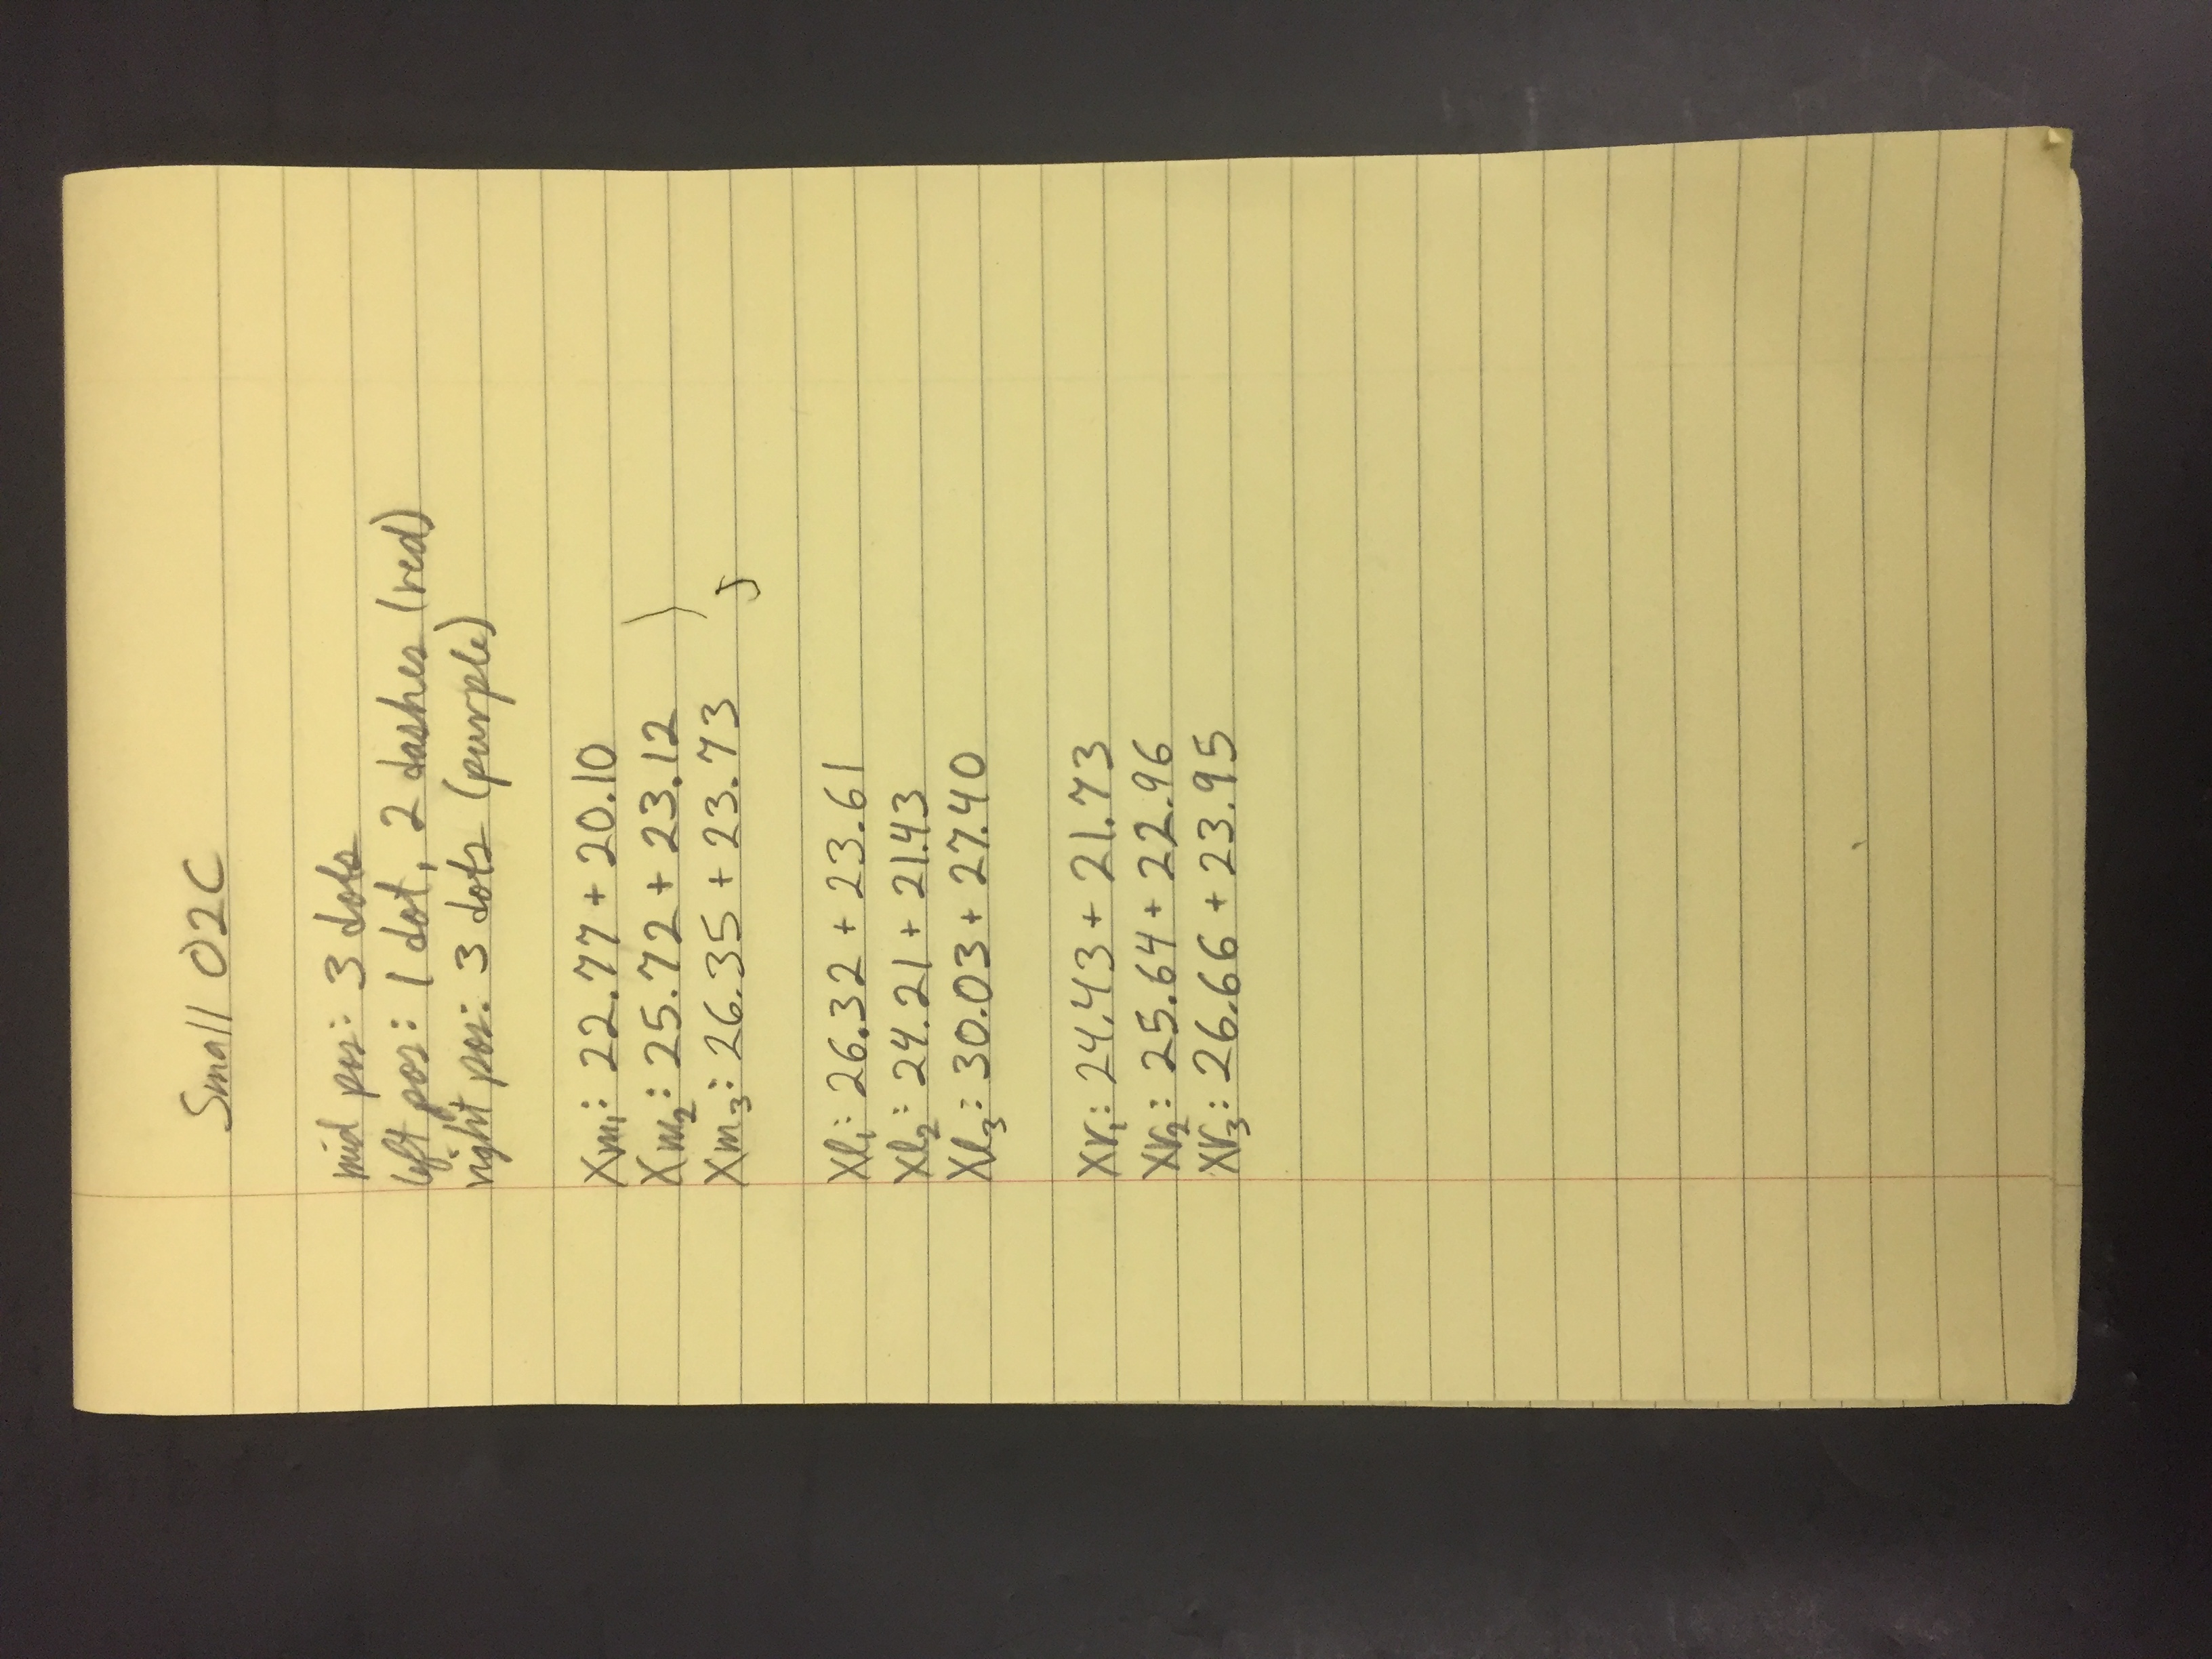 Small O2C
mid pos: 3 dots
left pos: 1 dot, 2 dashes (red)
right pos: 3 dots (purple)
Xm₁: 22.77 + 20.10
Xm₂: 25.72 + 23.12
Xm₃: 26.35 + 23.73
Xl₁: 26.32 + 23.61
Xl₂: 24.21 + 21.43
Xl₃: 30.03 + 27.40
Xr₁: 24.43 + 21.73
Xr₂: 25.64 + 22.96
Xr₃: 26.66 + 23.95